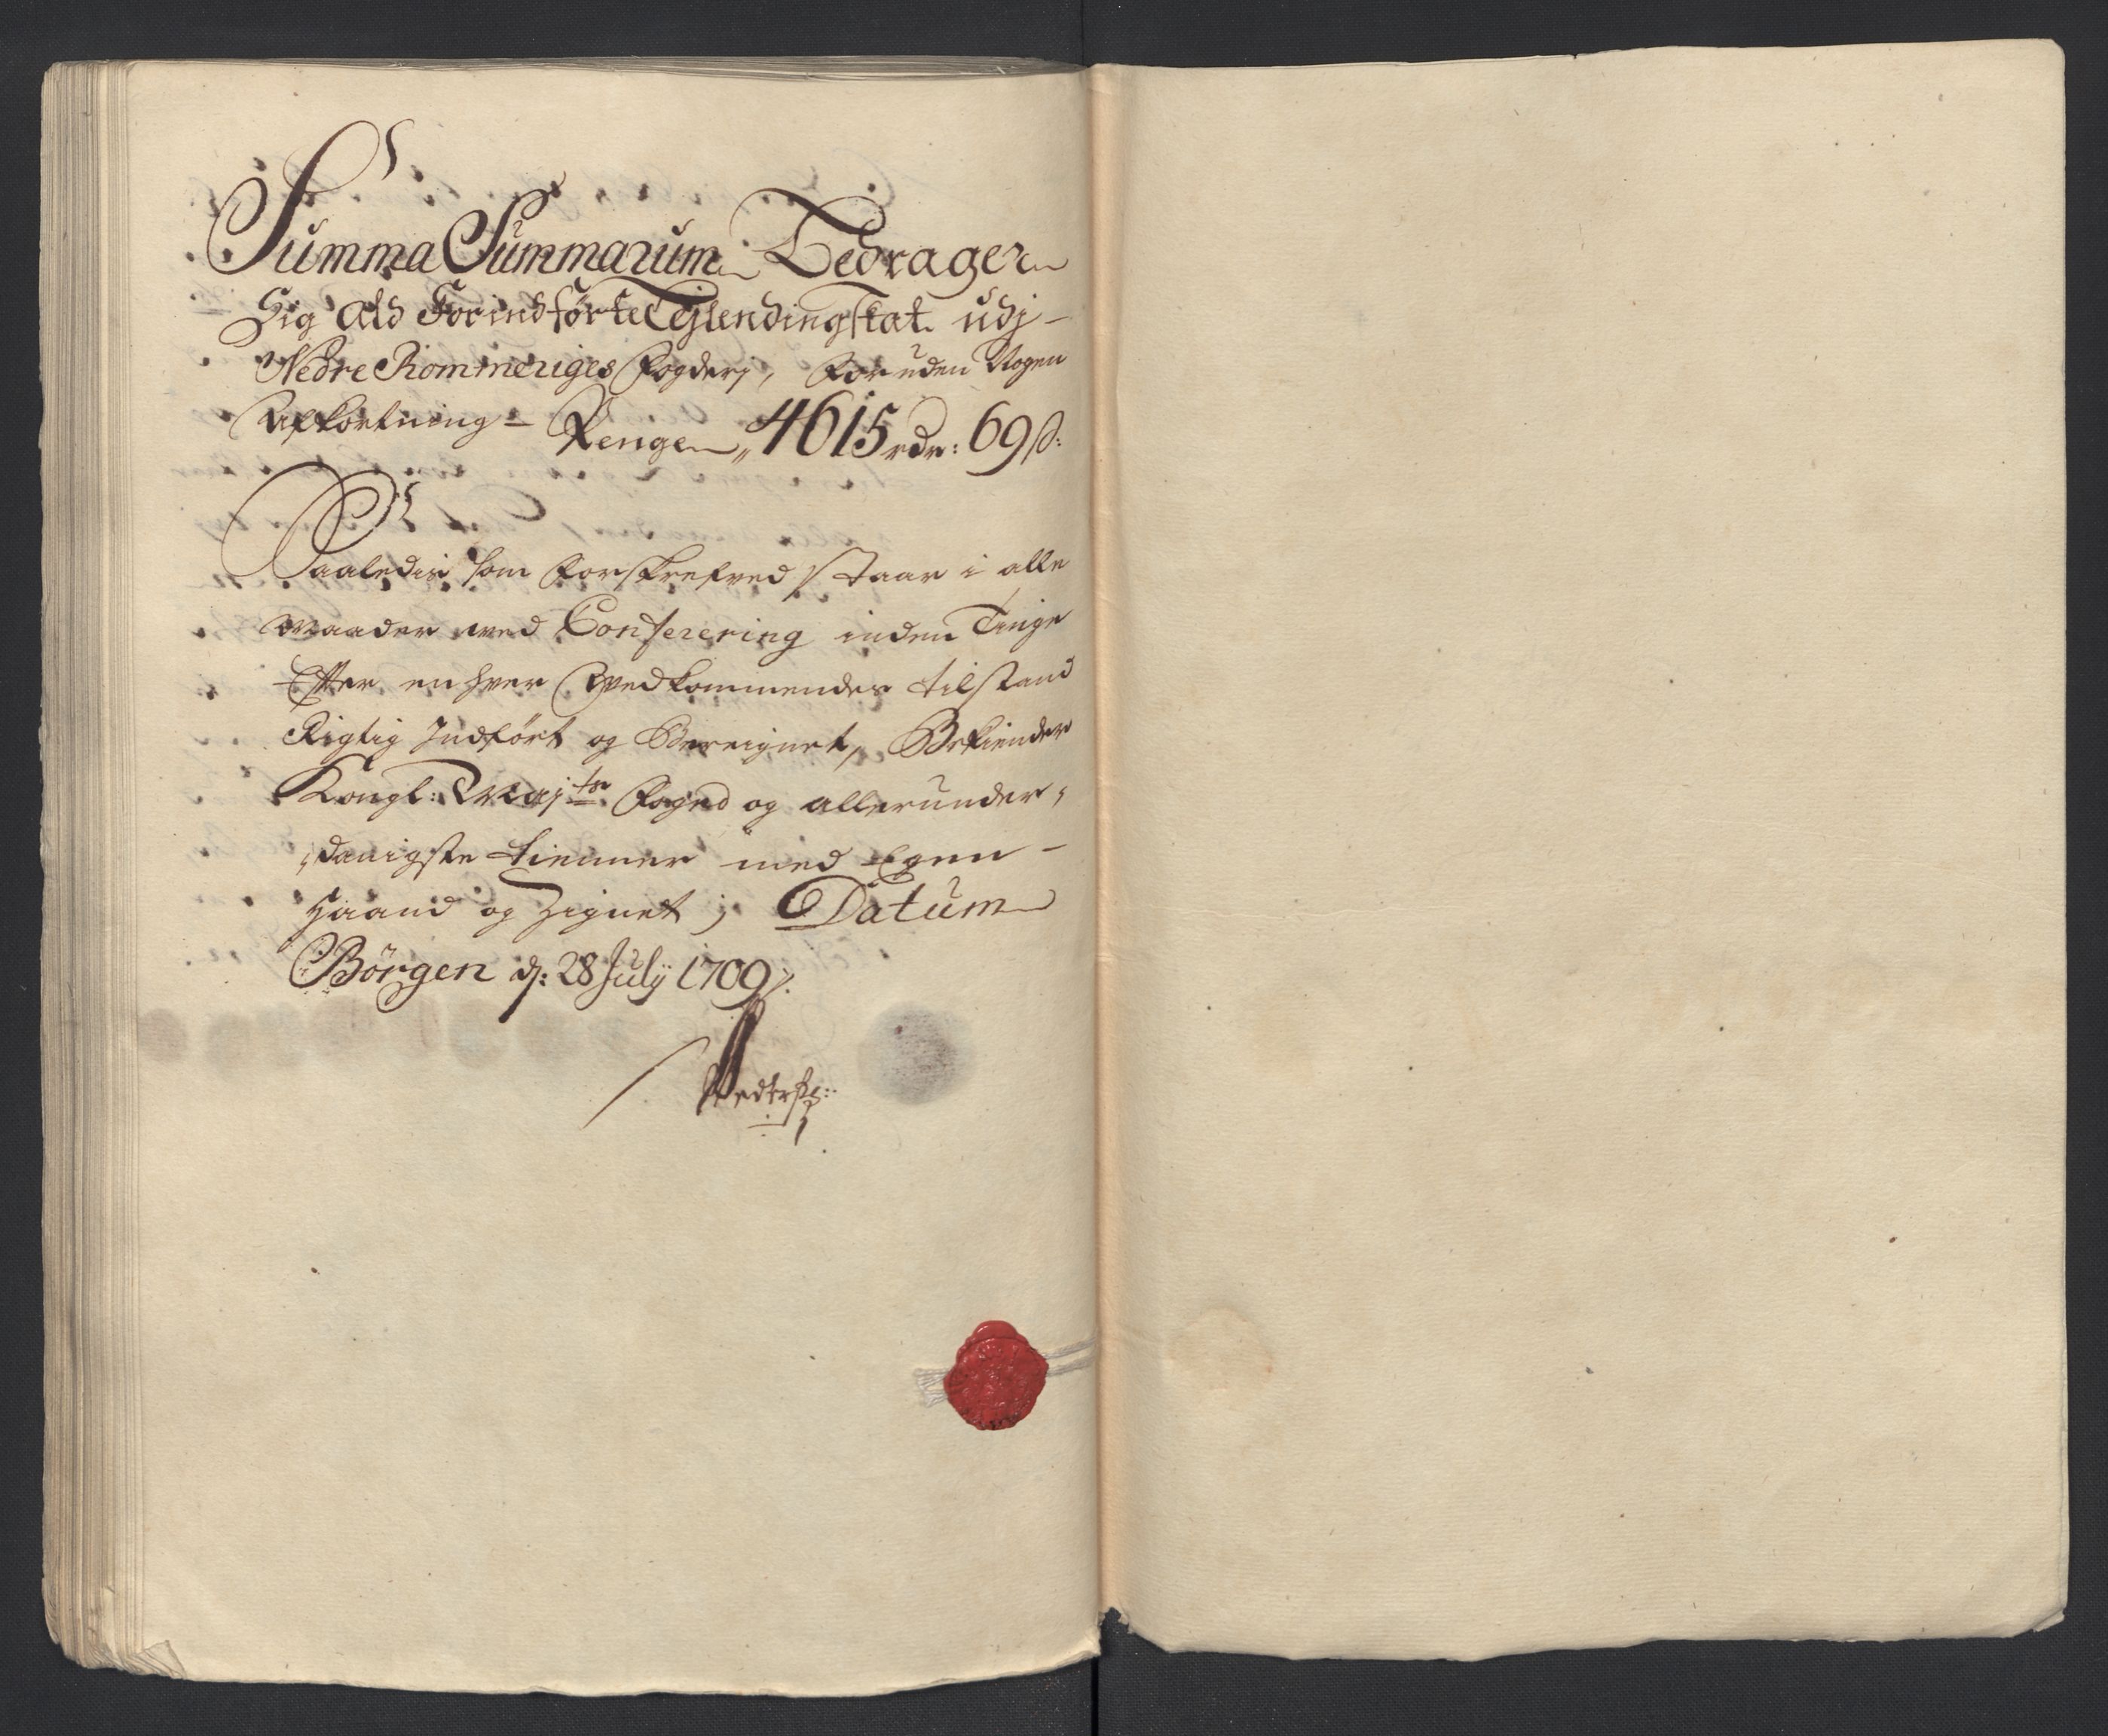 Summa Summarum Bedrager
Sig Ald Forindførte Ejlendingskat udj
Nedre Rommeriges Fogderj, Foruden Nogen
Afkortning - Penge „ 4615 rdr: 69 s:
Saaledis som Forskrefved staar i alle
maader ved Conferering inden Tinge
Efter enhver Vedkommendes tilstand
Rigtig Indført og Bereignet, Bekiender
Kongl: Maj:ts Foged og allerunder-
danigste tienner med Egen
Haand og Zignet; Datum
Børgen d: 28 July 1709